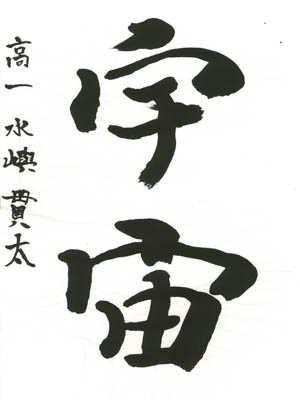 宇宙
高一 水嶼 貫太